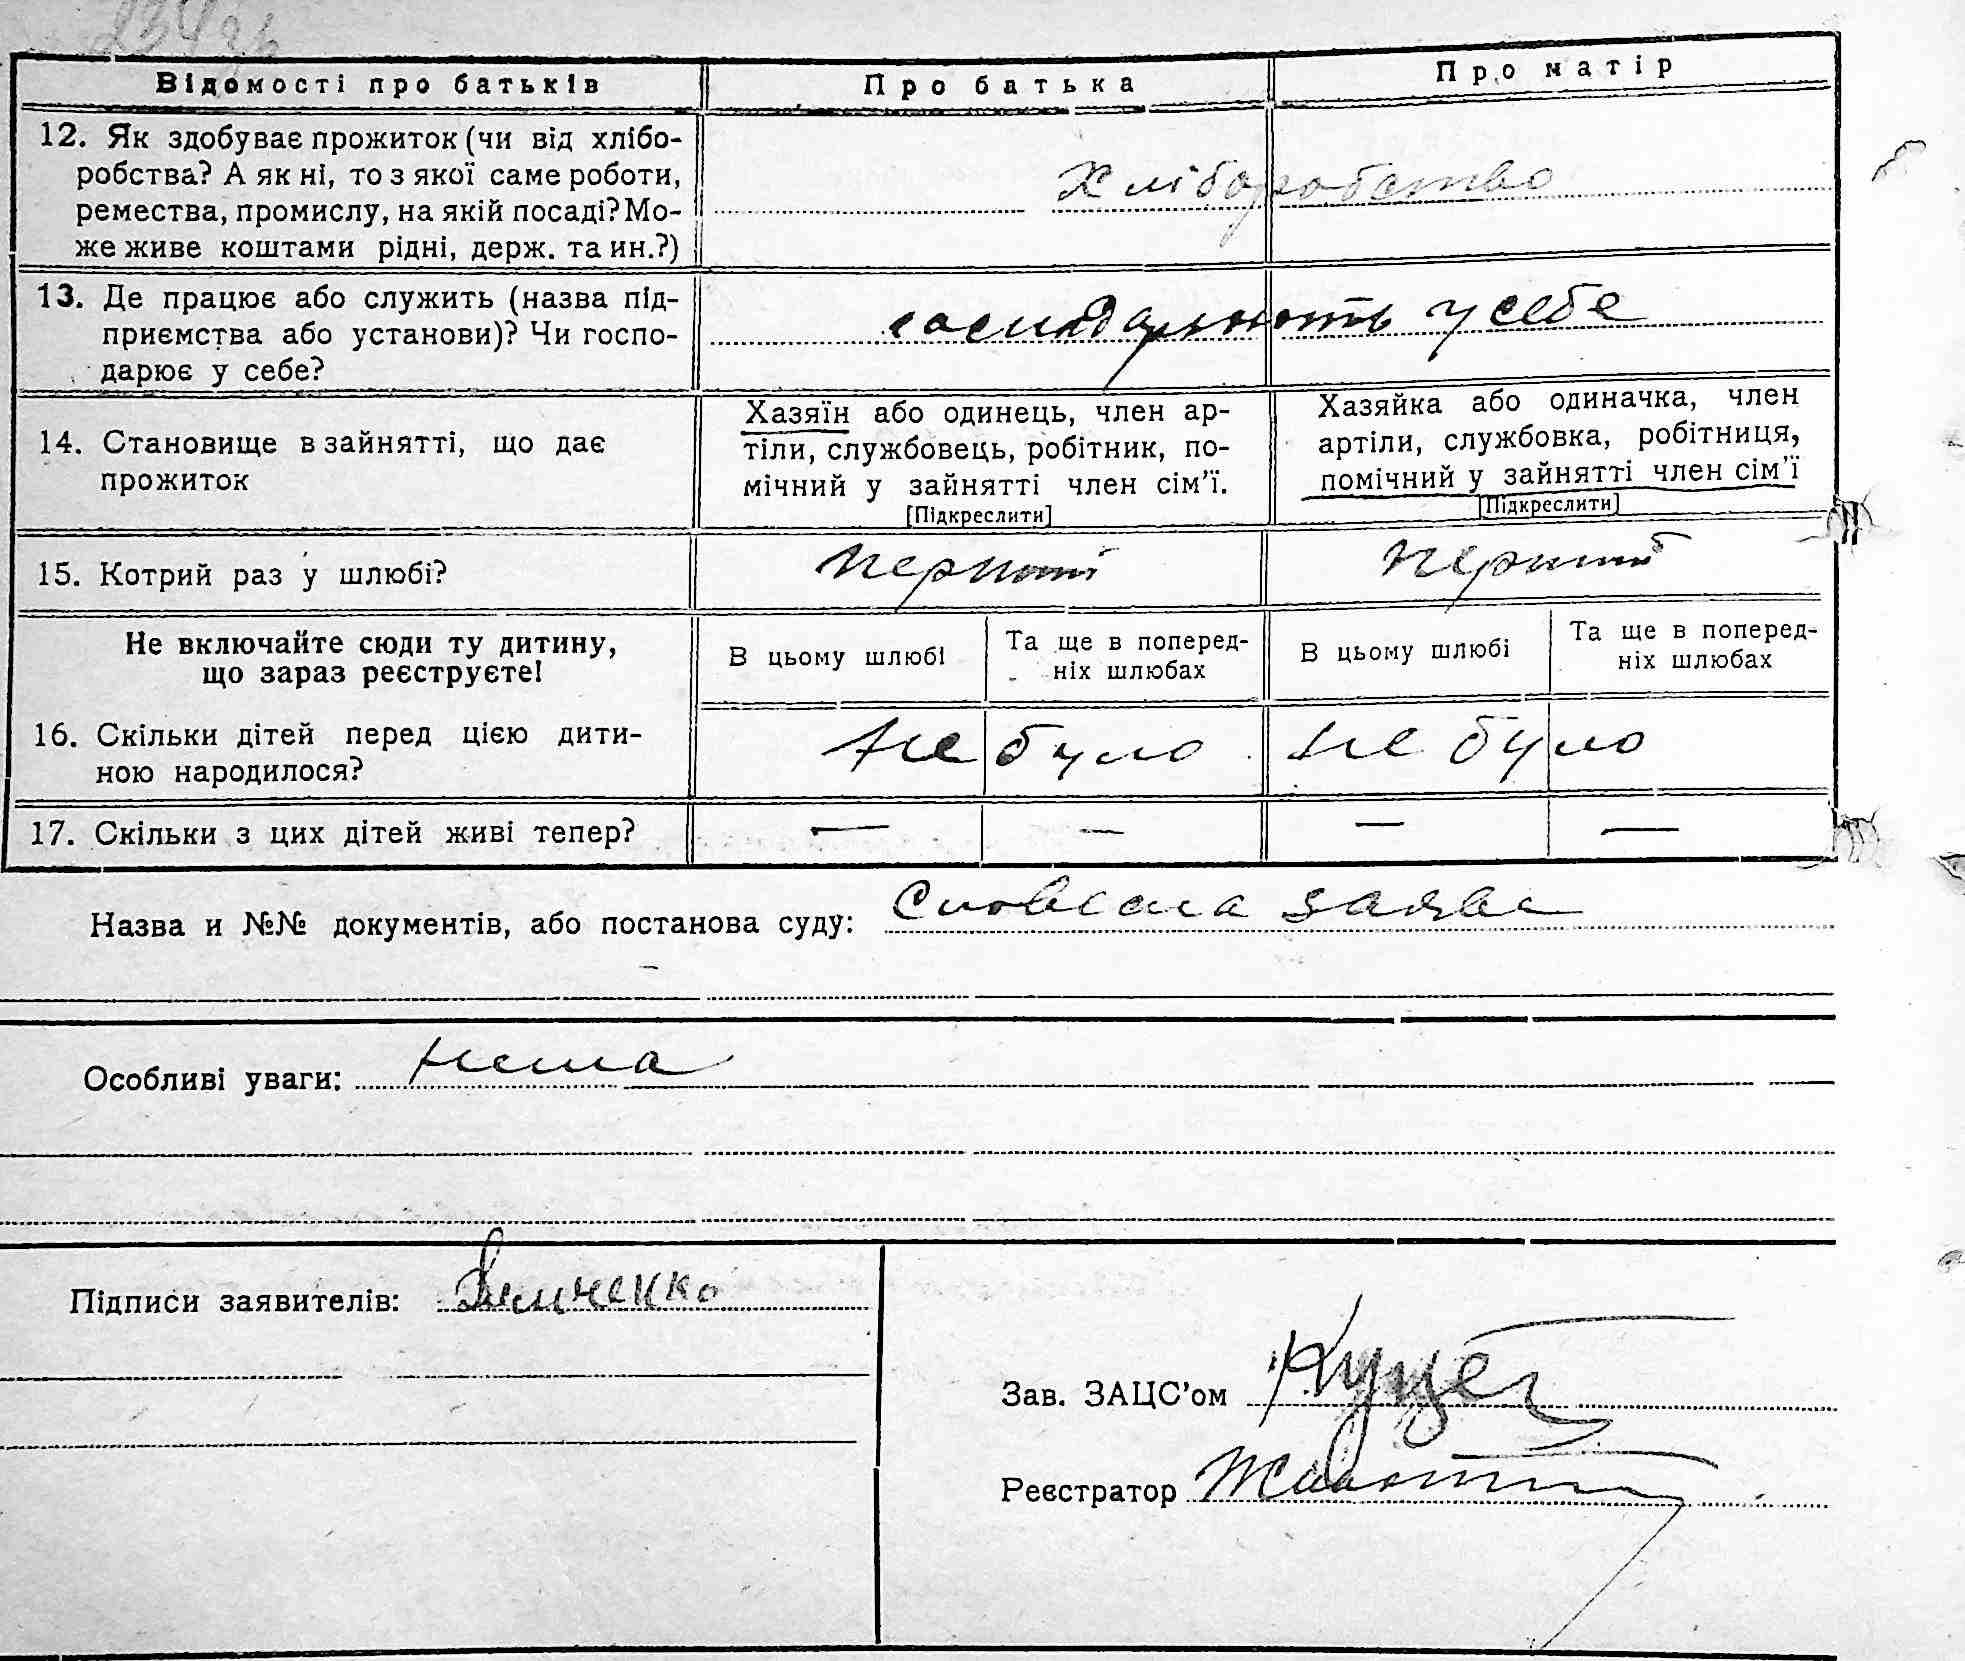 Відомості про батьків
Про батька
Про матір
12. Як здобуває прожиток (чи від хлібо-
робства? А як ні, то з якої саме роботи,
ремества, промислу, на якій посаді? Мо-
же живе коштами рідні, держ. та ин.?)
Хліборобство
13. Де працює або служить (назва під-
приємства або установи)? Чи госпо-
дарює у себе?
господарюють у себе
14. Становище в зайнятті, що дає
прожиток
Хазяїн або одинець, член ар-
тіли, службовець, робітник, по-
мічний у зайнятті член сім’ї.
[Підкреслити]
Хазяйка або одиначка, член
артіли, службовка, робітниця,
помічний у зайнятті член сім’ї
[Підкреслити]
15. Котрий раз у шлюбі?
перший
перший
Не включайте сюди ту дитину,
що зараз реєструєте!
В цьому шлюбі
Та ще в поперед-
ніх шлюбах
В цьому шлюбі
Та ще в поперед-
ніх шлюбах
16. Скільки дітей перед цією дити-
ною народилося?
не було
не було
17. Скільки з цих дітей живі тепер?
— — — —
Назва и №№ документів, або постанова суду: Словесна заява
Особливі уваги: нема
Підписи заявителів:
Зав. ЗАЦС’ом
Реєстратор